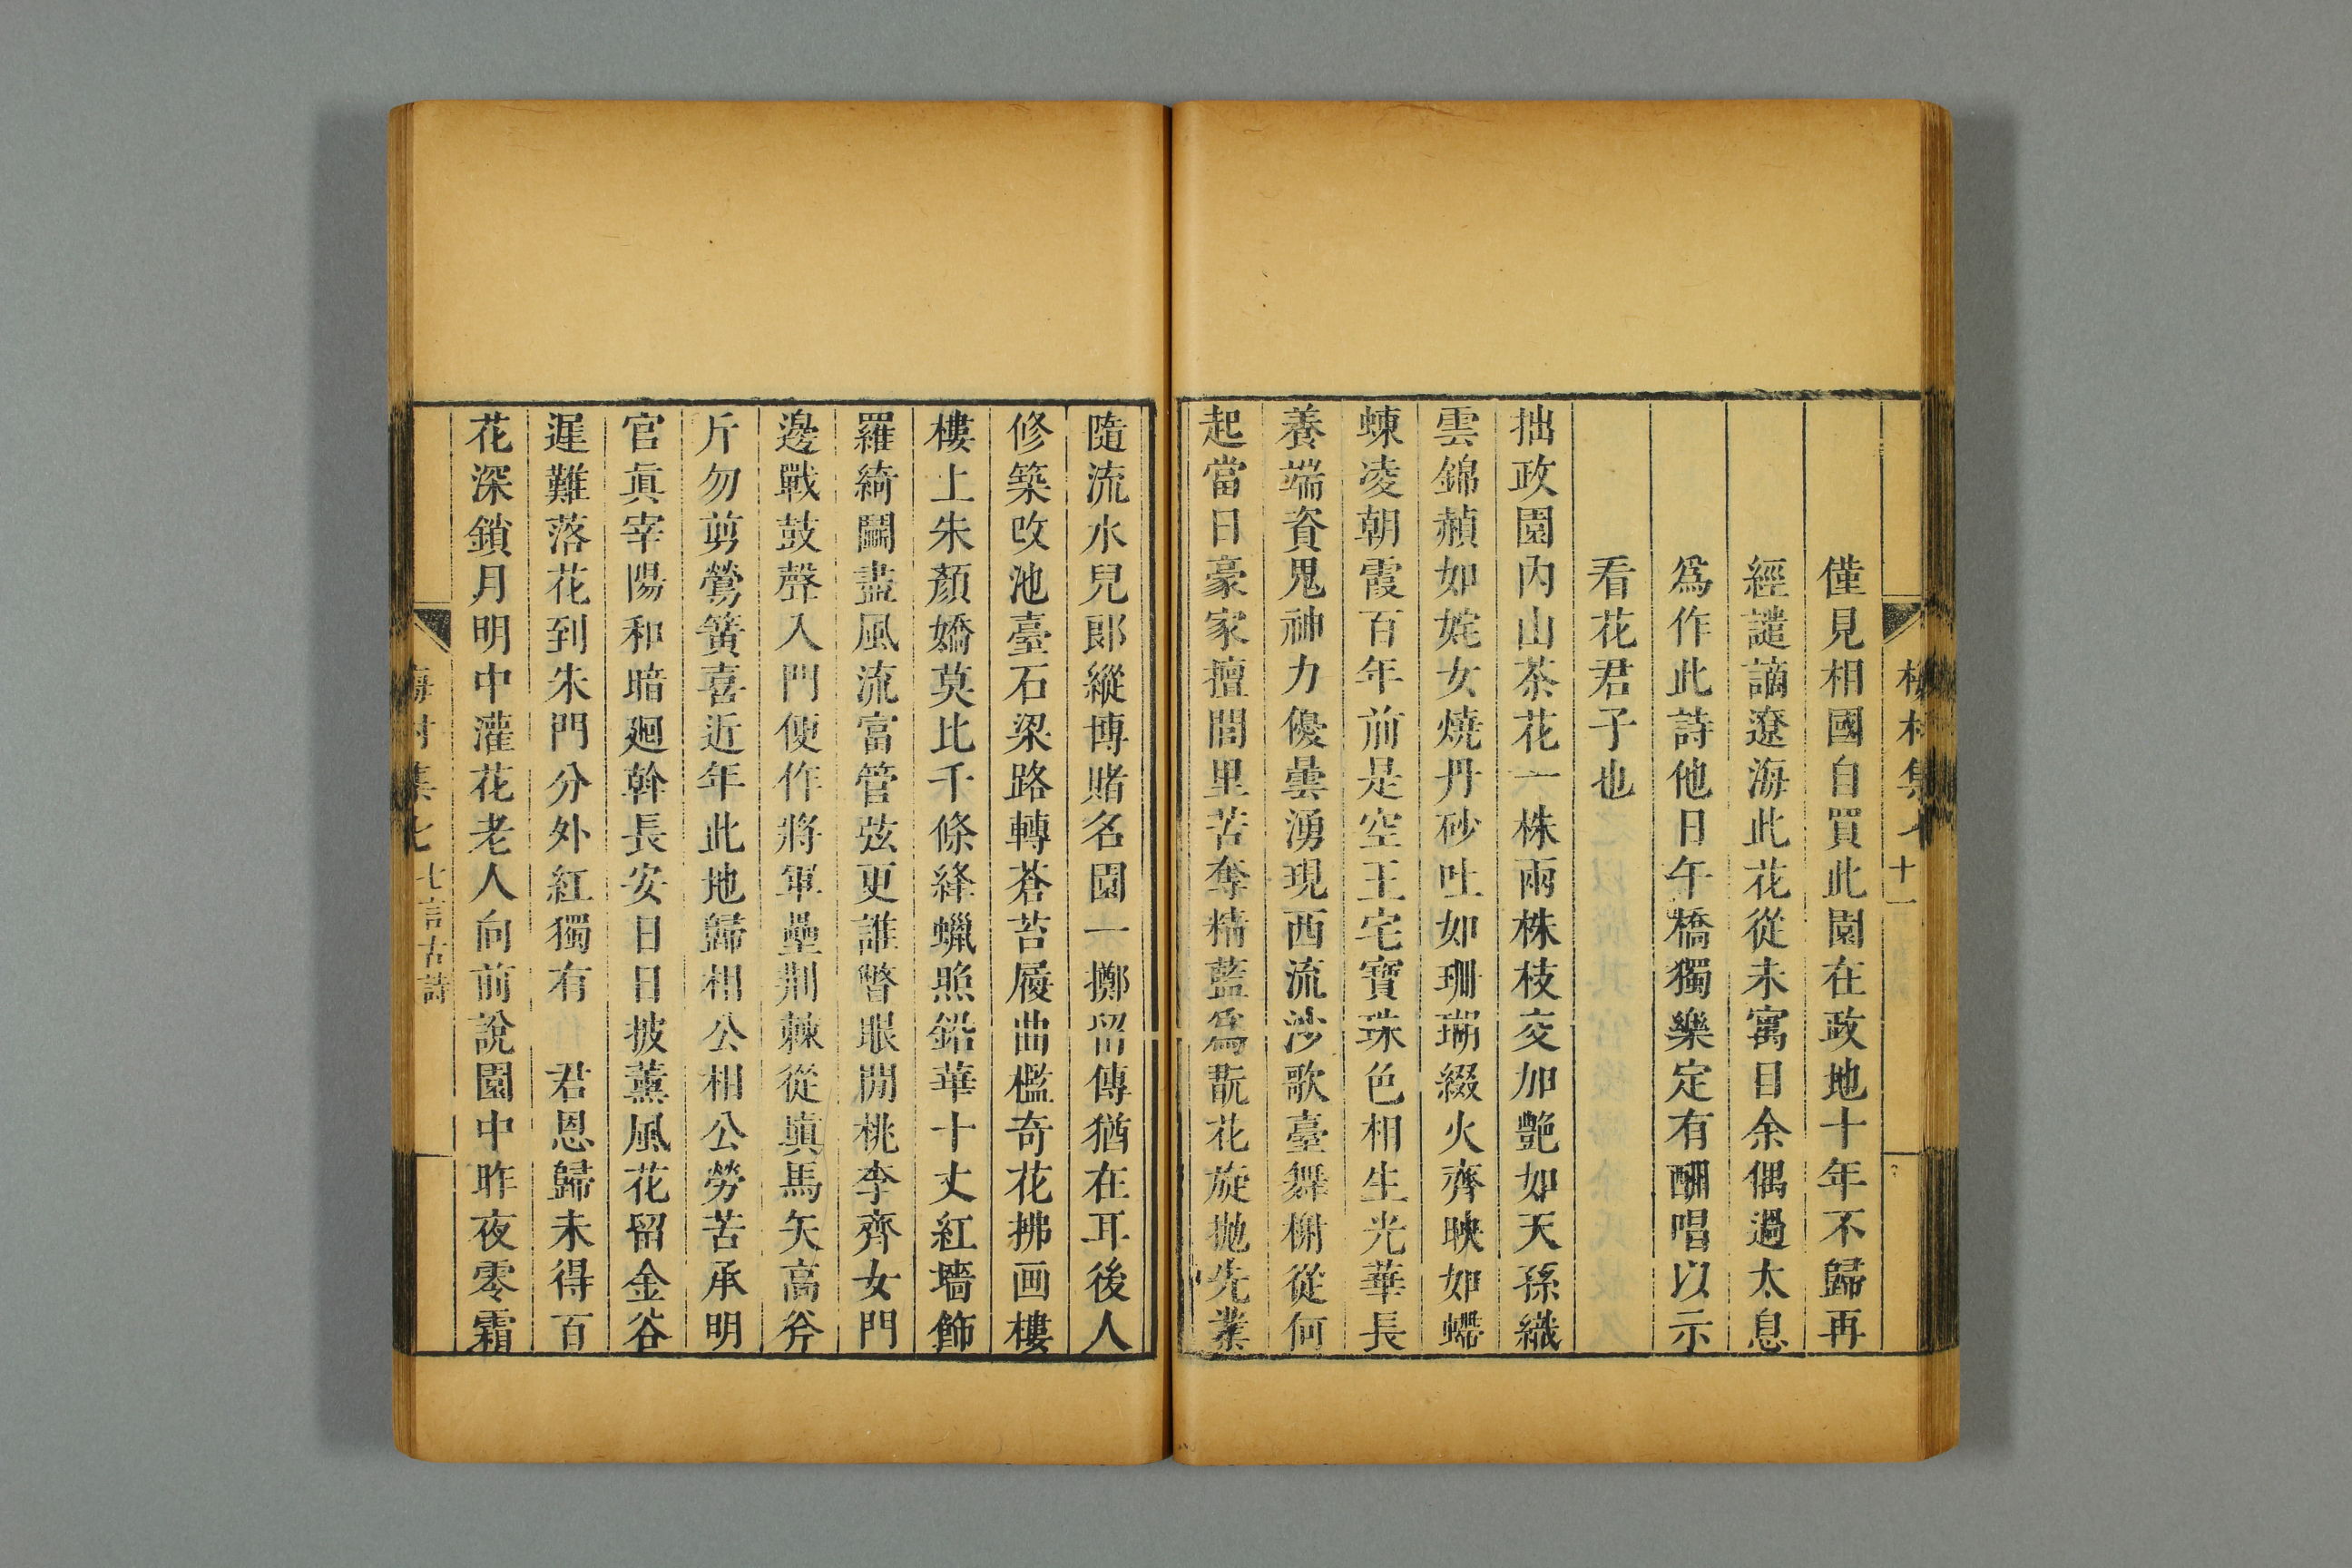 梅村集七 十一
僅見相國自買此園在政地十年不歸再
經譴謫遼海此花從未寓目余偶過太息
爲作此詩他日午橋獨樂定有酬唱以示
看花君子也
拙政園内山茶花一株兩株枝交加艷如天孫織
雲錦赬如姹女燒丹砂吐如珊瑚綴火齊映如蝃
蝀凌朝霞百年前是空王宅寶珠色相生光華長
養端資鬼神力優曇湧現西流沙歌臺舞榭從何
起當日豪家擅閭里苦奪精藍爲翫花旋抛先業
隨流水兒郎縱博賭名園一擲留傳猶在耳後人
修築改池臺石梁路轉蒼苔履曲檻奇花拂画樓
樓上朱顏嬌莫比千條絳蠟照鉛華十丈紅墻飾
羅綺鬬盡風流富管弦更誰瞥眼閒桃李齊女門
邊戰鼓聲入門便作將軍壘荆棘從塡馬矢高斧
斤勿剪鶯簧喜近年此地歸相公相公勞苦承明
官眞宰陽和暗廻斡長安日日披薰風花留金谷
遲難落花到朱門分外紅獨有君恩歸未得百
花深鎖月明中灌花老人向前說園中昨夜零霜
梅村集七 七言古詩